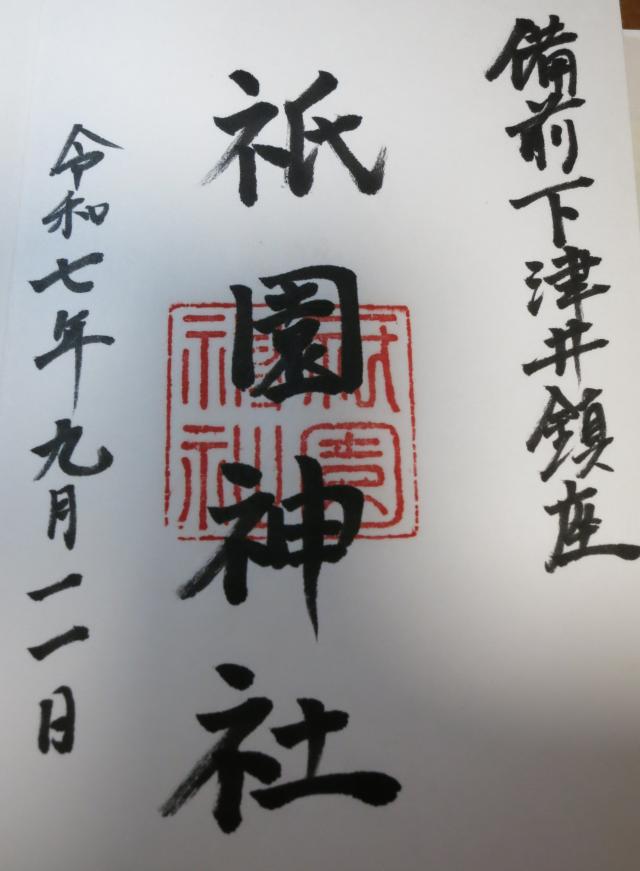 備前下津井鎮座
祇園神社
祇園神社
令和七年九月一一日